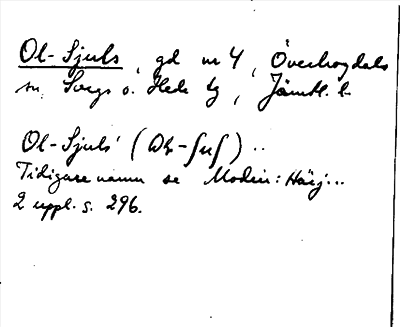 Ol-Sjuls, gd nr 4, Överhogdals
sn, Svegs o. Hede tg, Jämtl. l.
Ol-Sjuls' ( ) ..
Tidigare namn se Modin: Härj...
2 uppl. s. 296.